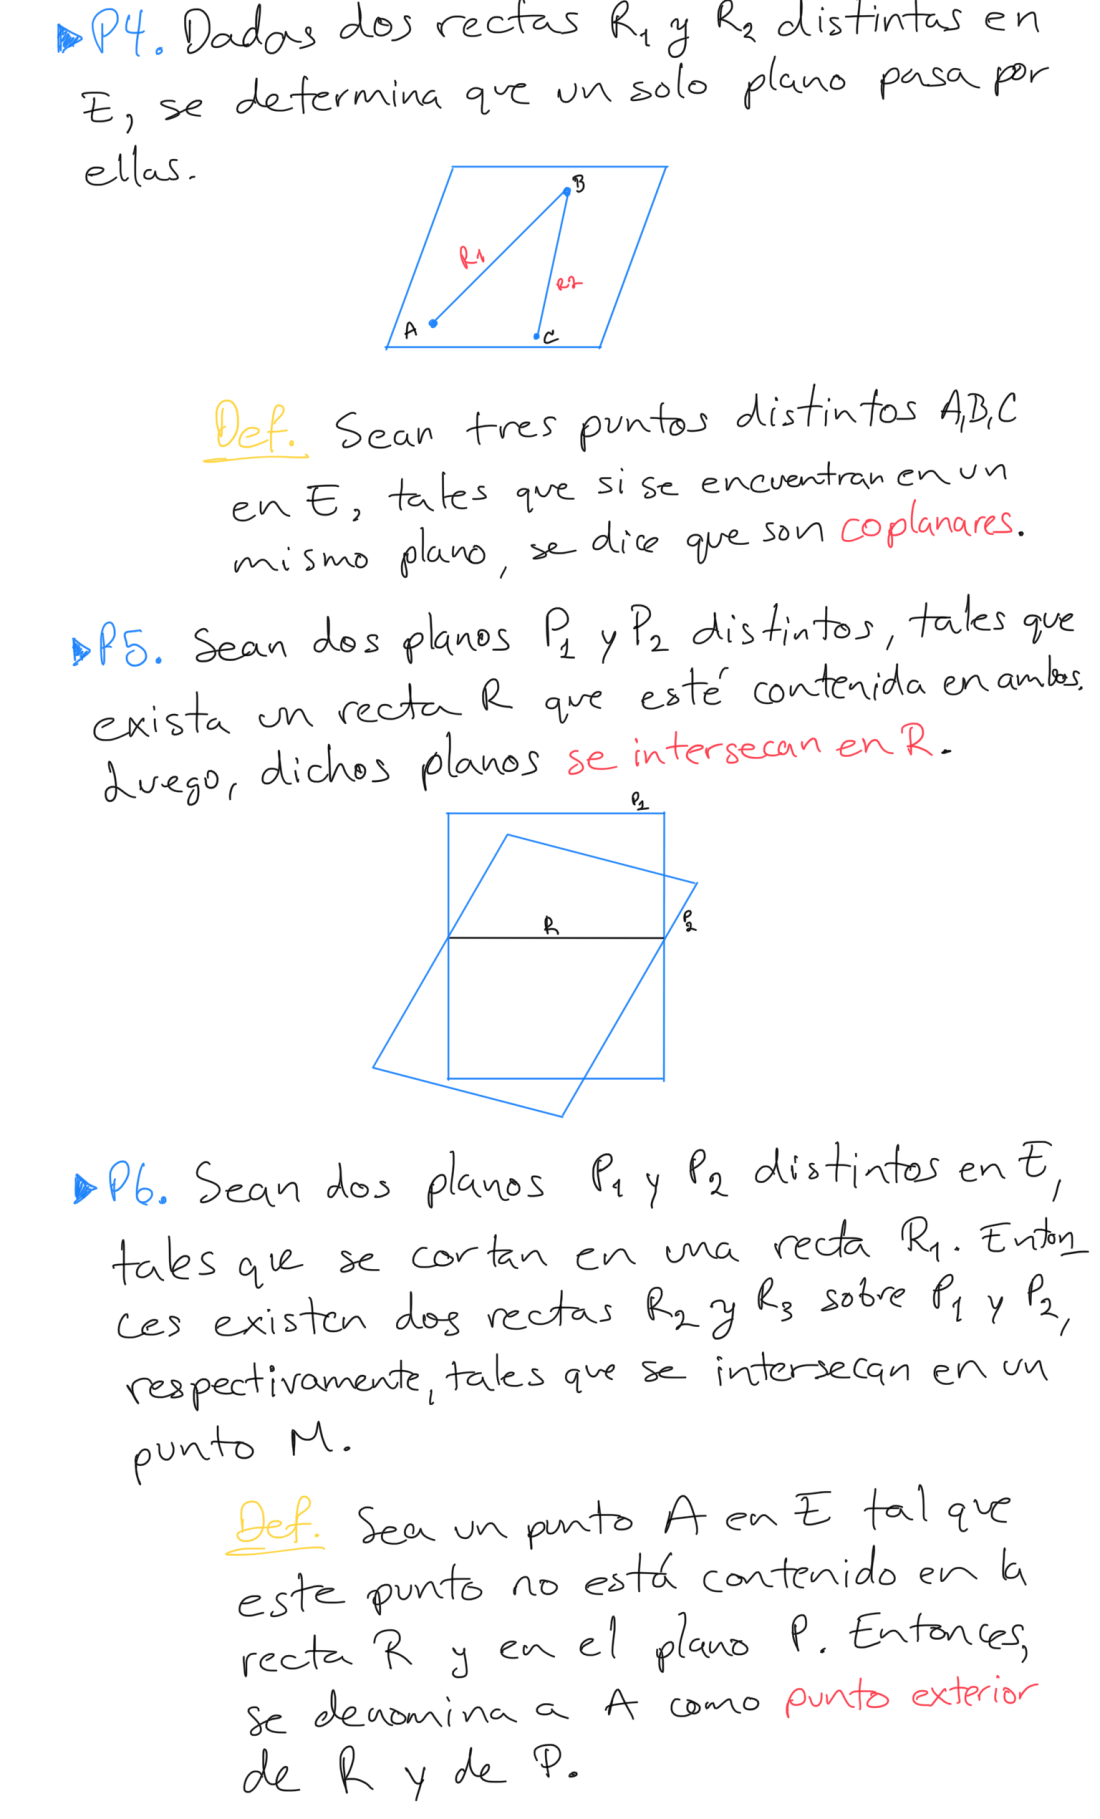 P4. Dadas dos rectas R₁ y R₂ distintas en
E, se determina que un solo plano pasa por
ellas.
B
R1
R2
A
C
Def. Sean tres puntos distintos A,B,C
en E, tales que si se encuentran en un
mismo plano, se dice que son coplanares.
P5. Sean dos planos P₁ y P₂ distintos, tales que
exista un recta R que esté contenida en ambos.
Luego, dichos planos se intersecan en R.
P₁
R
P₂
P6. Sean dos planos P₁ y P₂ distintos en E,
tales que se cortan en una recta R₁. Enton_
ces existen dos rectas R₂ y R₃ sobre P₁ y P₂,
respectivamente, tales que se intersecan en un
punto M.
Def. Sea un punto A en E tal que
este punto no está contenido en la
recta R y en el plano P. Entonces,
se denomina a A como punto exterior
de R y de P.